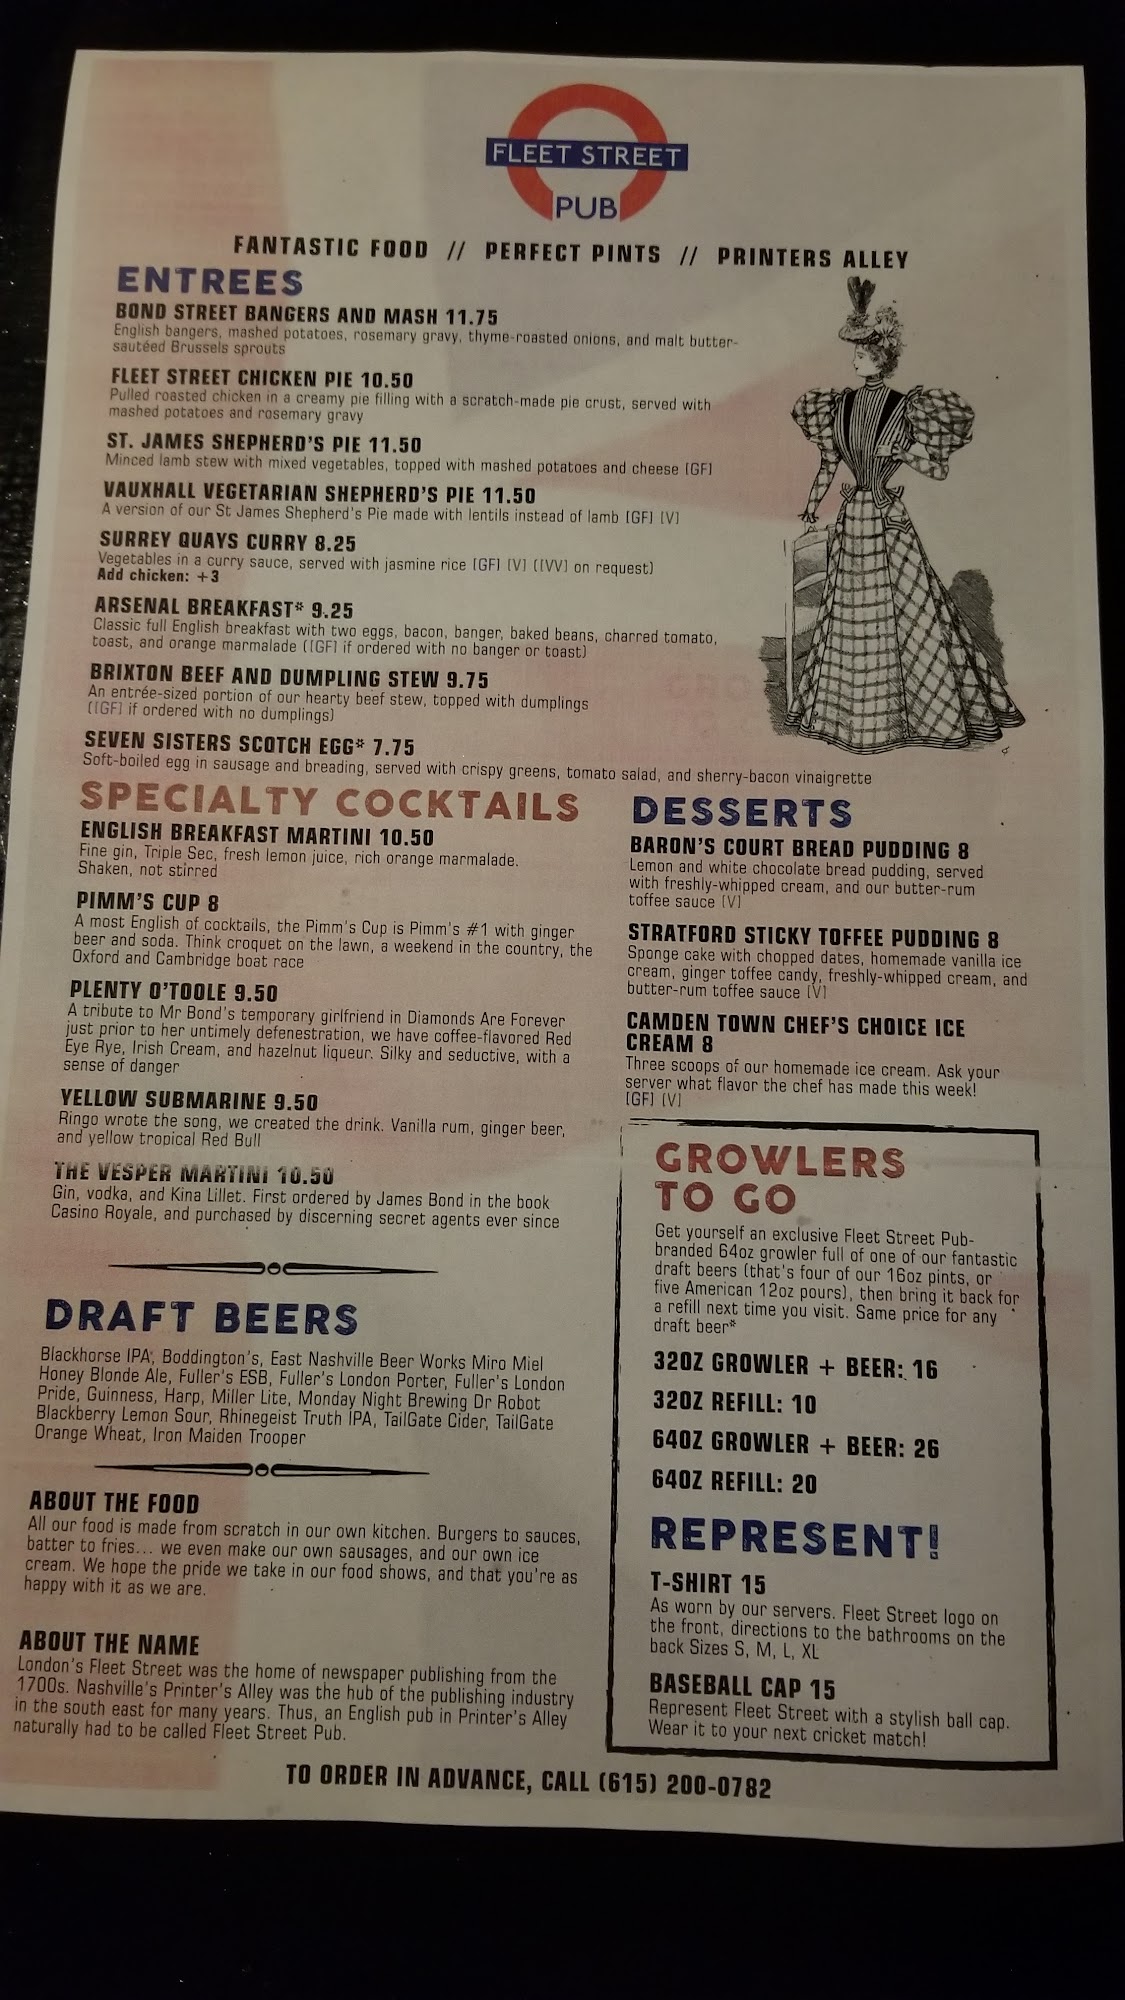 FLEET STREET
PUB
FANTASTIC FOOD // PERFECT PINTS // PRINTERS ALLEY
ENTREES
BOND STREET BANGERS AND MASH 11.75
English bangers, mashed potatoes, rosemary gravy, thyme-roasted onions, and malt butter-
sautéed Brussels sprouts
FLEET STREET CHICKEN PIE 10.50
Pulled roasted chicken in a creamy pie filling with a scratch-made pie crust, served with
mashed potatoes and rosemary gravy
ST. JAMES SHEPHERD'S PIE 11.50
Minced lamb stew with mixed vegetables, topped with mashed potatoes and cheese [GF]
VAUXHALL VEGETARIAN SHEPHERD'S PIE 11.50
A version of our St James Shepherd's Pie made with lentils instead of lamb [GF] [V]
SURREY QUAYS CURRY 8.25
Vegetables in a curry sauce, served with jasmine rice [GF] [V] ([VV] on request)
Add chicken: +3
ARSENAL BREAKFAST* 9.25
Classic full English breakfast with two eggs, bacon, banger, baked beans, charred tomato,
toast, and orange marmalade ([GF] if ordered with no banger or toast)
BRIXTON BEEF AND DUMPLING STEW 9.75
An entrée-sized portion of our hearty beef stew, topped with dumplings
([GF] if ordered with no dumplings)
SEVEN SISTERS SCOTCH EGG* 7.75
Soft-boiled egg in sausage and breading, served with crispy greens, tomato salad, and sherry-bacon vinaigrette
SPECIALTY COCKTAILS
ENGLISH BREAKFAST MARTINI 10.50
Fine gin, Triple Sec, fresh lemon juice, rich orange marmalade.
Shaken, not stirred
PIMM'S CUP 8
A most English of cocktails, the Pimm's Cup is Pimm's #1 with ginger
beer and soda. Think croquet on the lawn, a weekend in the country, the
Oxford and Cambridge boat race
PLENTY O'TOOLE 9.50
A tribute to Mr Bond's temporary girlfriend in Diamonds Are Forever
just prior to her untimely defenestration, we have coffee-flavored Red
Eye Rye, Irish Cream, and hazelnut liqueur. Silky and seductive, with a
sense of danger
YELLOW SUBMARINE 9.50
Ringo wrote the song, we created the drink. Vanilla rum, ginger beer,
and yellow tropical Red Bull
THE VESPER MARTINI 10.50
Gin, vodka, and Kina Lillet. First ordered by James Bond in the book
Casino Royale, and purchased by discerning secret agents ever since
DRAFT BEERS
Blackhorse IPA, Boddington's, East Nashville Beer Works Miro Miel
Honey Blonde Ale, Fuller's ESB, Fuller's London Porter, Fuller's London
Pride, Guinness, Harp, Miller Lite, Monday Night Brewing Dr Robot
Blackberry Lemon Sour, Rhinegeist Truth IPA, TailGate Cider, TailGate
Orange Wheat, Iron Maiden Trooper
ABOUT THE FOOD
All our food is made from scratch in our own kitchen. Burgers to sauces,
batter to fries... we even make our own sausages, and our own ice
cream. We hope the pride we take in our food shows, and that you're as
happy with it as we are.
ABOUT THE NAME
London's Fleet Street was the home of newspaper publishing from the
1700s. Nashville's Printer's Alley was the hub of the publishing industry
in the south east for many years. Thus, an English pub in Printer's Alley
naturally had to be called Fleet Street Pub.
DESSERTS
BARON'S COURT BREAD PUDDING 8
Lemon and white chocolate bread pudding, served
with freshly-whipped cream, and our butter-rum
toffee sauce [V]
STRATFORD STICKY TOFFEE PUDDING 8
Sponge cake with chopped dates, homemade vanilla ice
cream, ginger toffee candy, freshly-whipped cream, and
butter-rum toffee sauce [V]
CAMDEN TOWN CHEF'S CHOICE ICE
CREAM 8
Three scoops of our homemade ice cream. Ask your
server what flavor the chef has made this week!
[GF] [V]
GROWLERS
TO GO
Get yourself an exclusive Fleet Street Pub-
branded 64oz growler full of one of our fantastic
draft beers (that's four of our 16oz pints, or
five American 12oz pours), then bring it back for
a refill next time you visit. Same price for any
draft beer*
32OZ GROWLER + BEER: 16
32OZ REFILL: 10
64OZ GROWLER + BEER: 26
64OZ REFILL: 20
REPRESENT!
T-SHIRT 15
As worn by our servers. Fleet Street logo on
the front, directions to the bathrooms on the
back Sizes S, M, L, XL
BASEBALL CAP 15
Represent Fleet Street with a stylish ball cap.
Wear it to your next cricket match!
TO ORDER IN ADVANCE, CALL (615) 200-0782